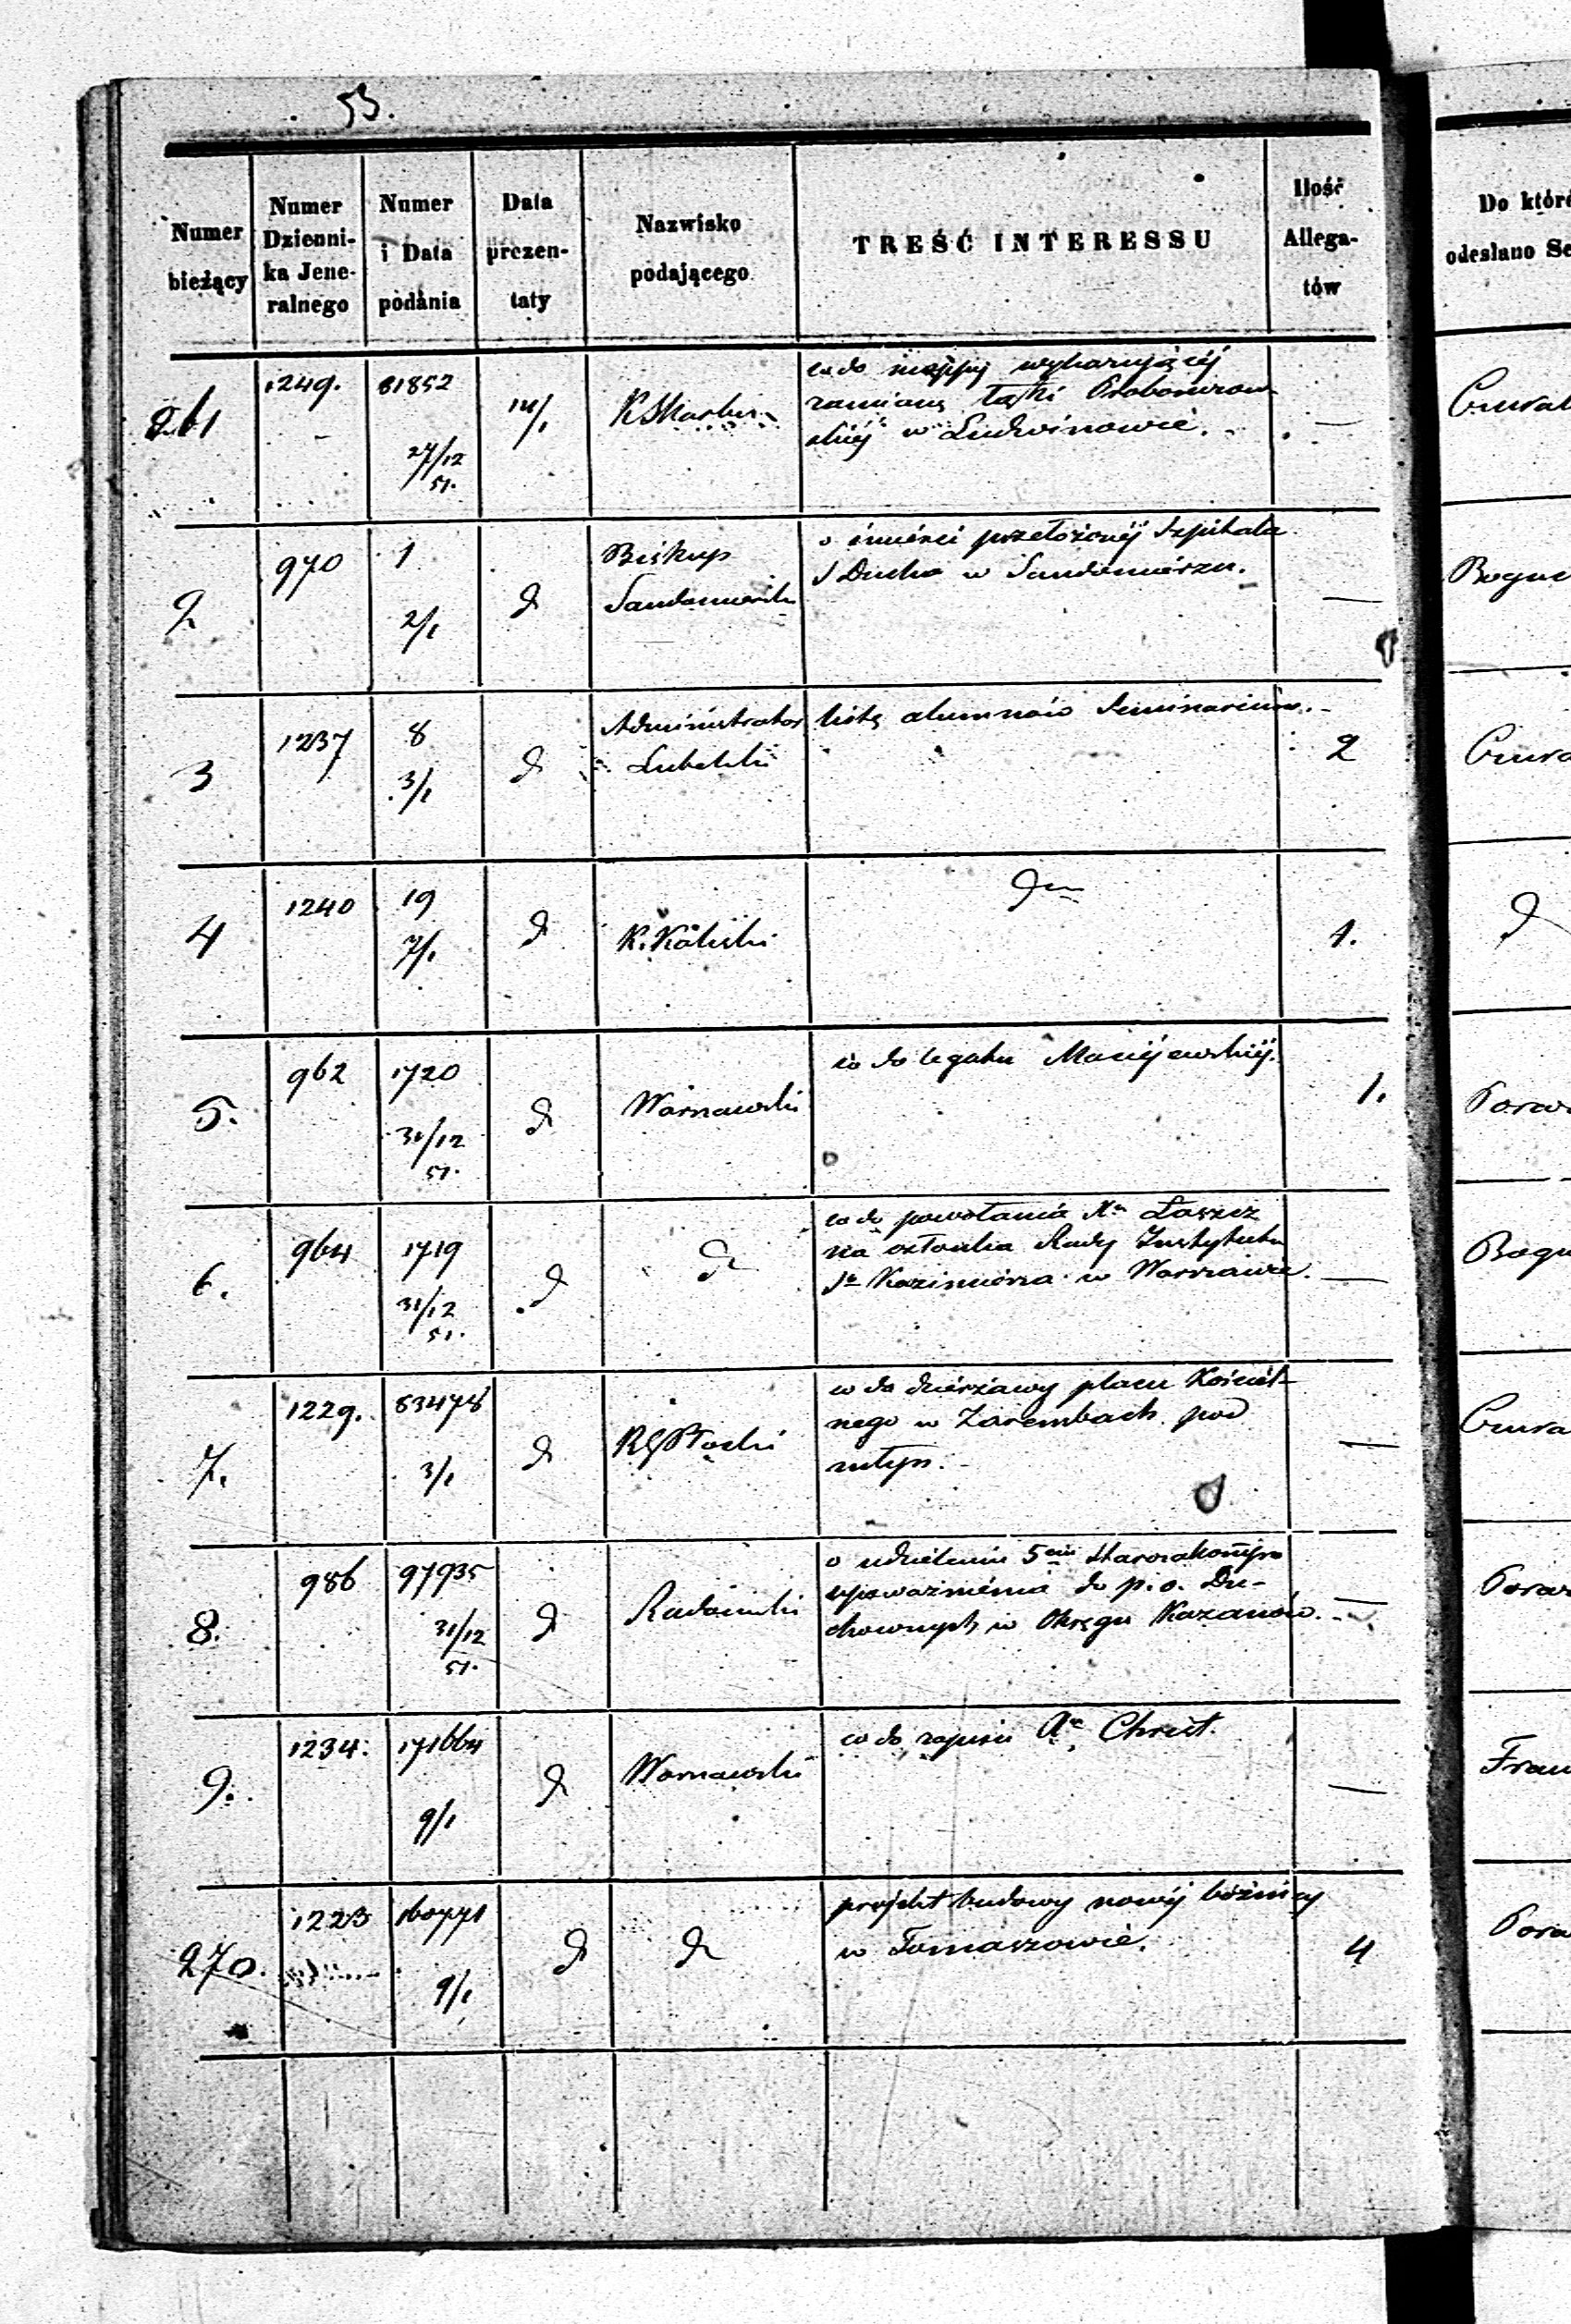 53.
Numer bieżący
Numer Dzienni-ka Jene-ralnego
Numer i Data podania
Data prezen-taty
Nazwisko podającego
TREŚĆ INTERESSU
Ilość Allega-tów
Do któré
odesłano Se
261 1249. 81852 27/12 51. 14/1 K Skarbu
co do mappy wykazującéj
zamianę łąki Proboszczow-
skiéj w Ludwinowie. —
2 970 1 2/1 d Biskup Sandomierski
o śmierci przełożonéj Szpitala
S Ducha w Sandomierzu. —
3 1237 8 3/1 d Administrator Lubelski
listę alumnów Seminarium. 2
4 1240 19 7/1 d K. Kaliski
d 1.
d
5. 962 1720 31/12 51. d Warszawski
co do legatu Maciejewskiéj. 1.
6. 964 1719 31/12 51. d d
co do powołania Xa Łaszcz
na członka Rady Instytutu
So Kazimierza w Warszawie. —
7. 1229. 83478 3/1 d RG Płocki
co do dzierżawy placu Kościel-
nego w Zarembach pod
młyn. —
8. 986 97935 31/12 51. d Radomski
o udzieleniu 5ciu
upoważnienia do p.o. Du-
chownych w Okręgu Kozanów. —
9. 1234. 171664 9/1 d Warszawski
co do zapisu An Chreit. —
270. 1223 160771 9/1 d d
projekt budowy nowéj bóżnicy
w Tomaszowie. 4